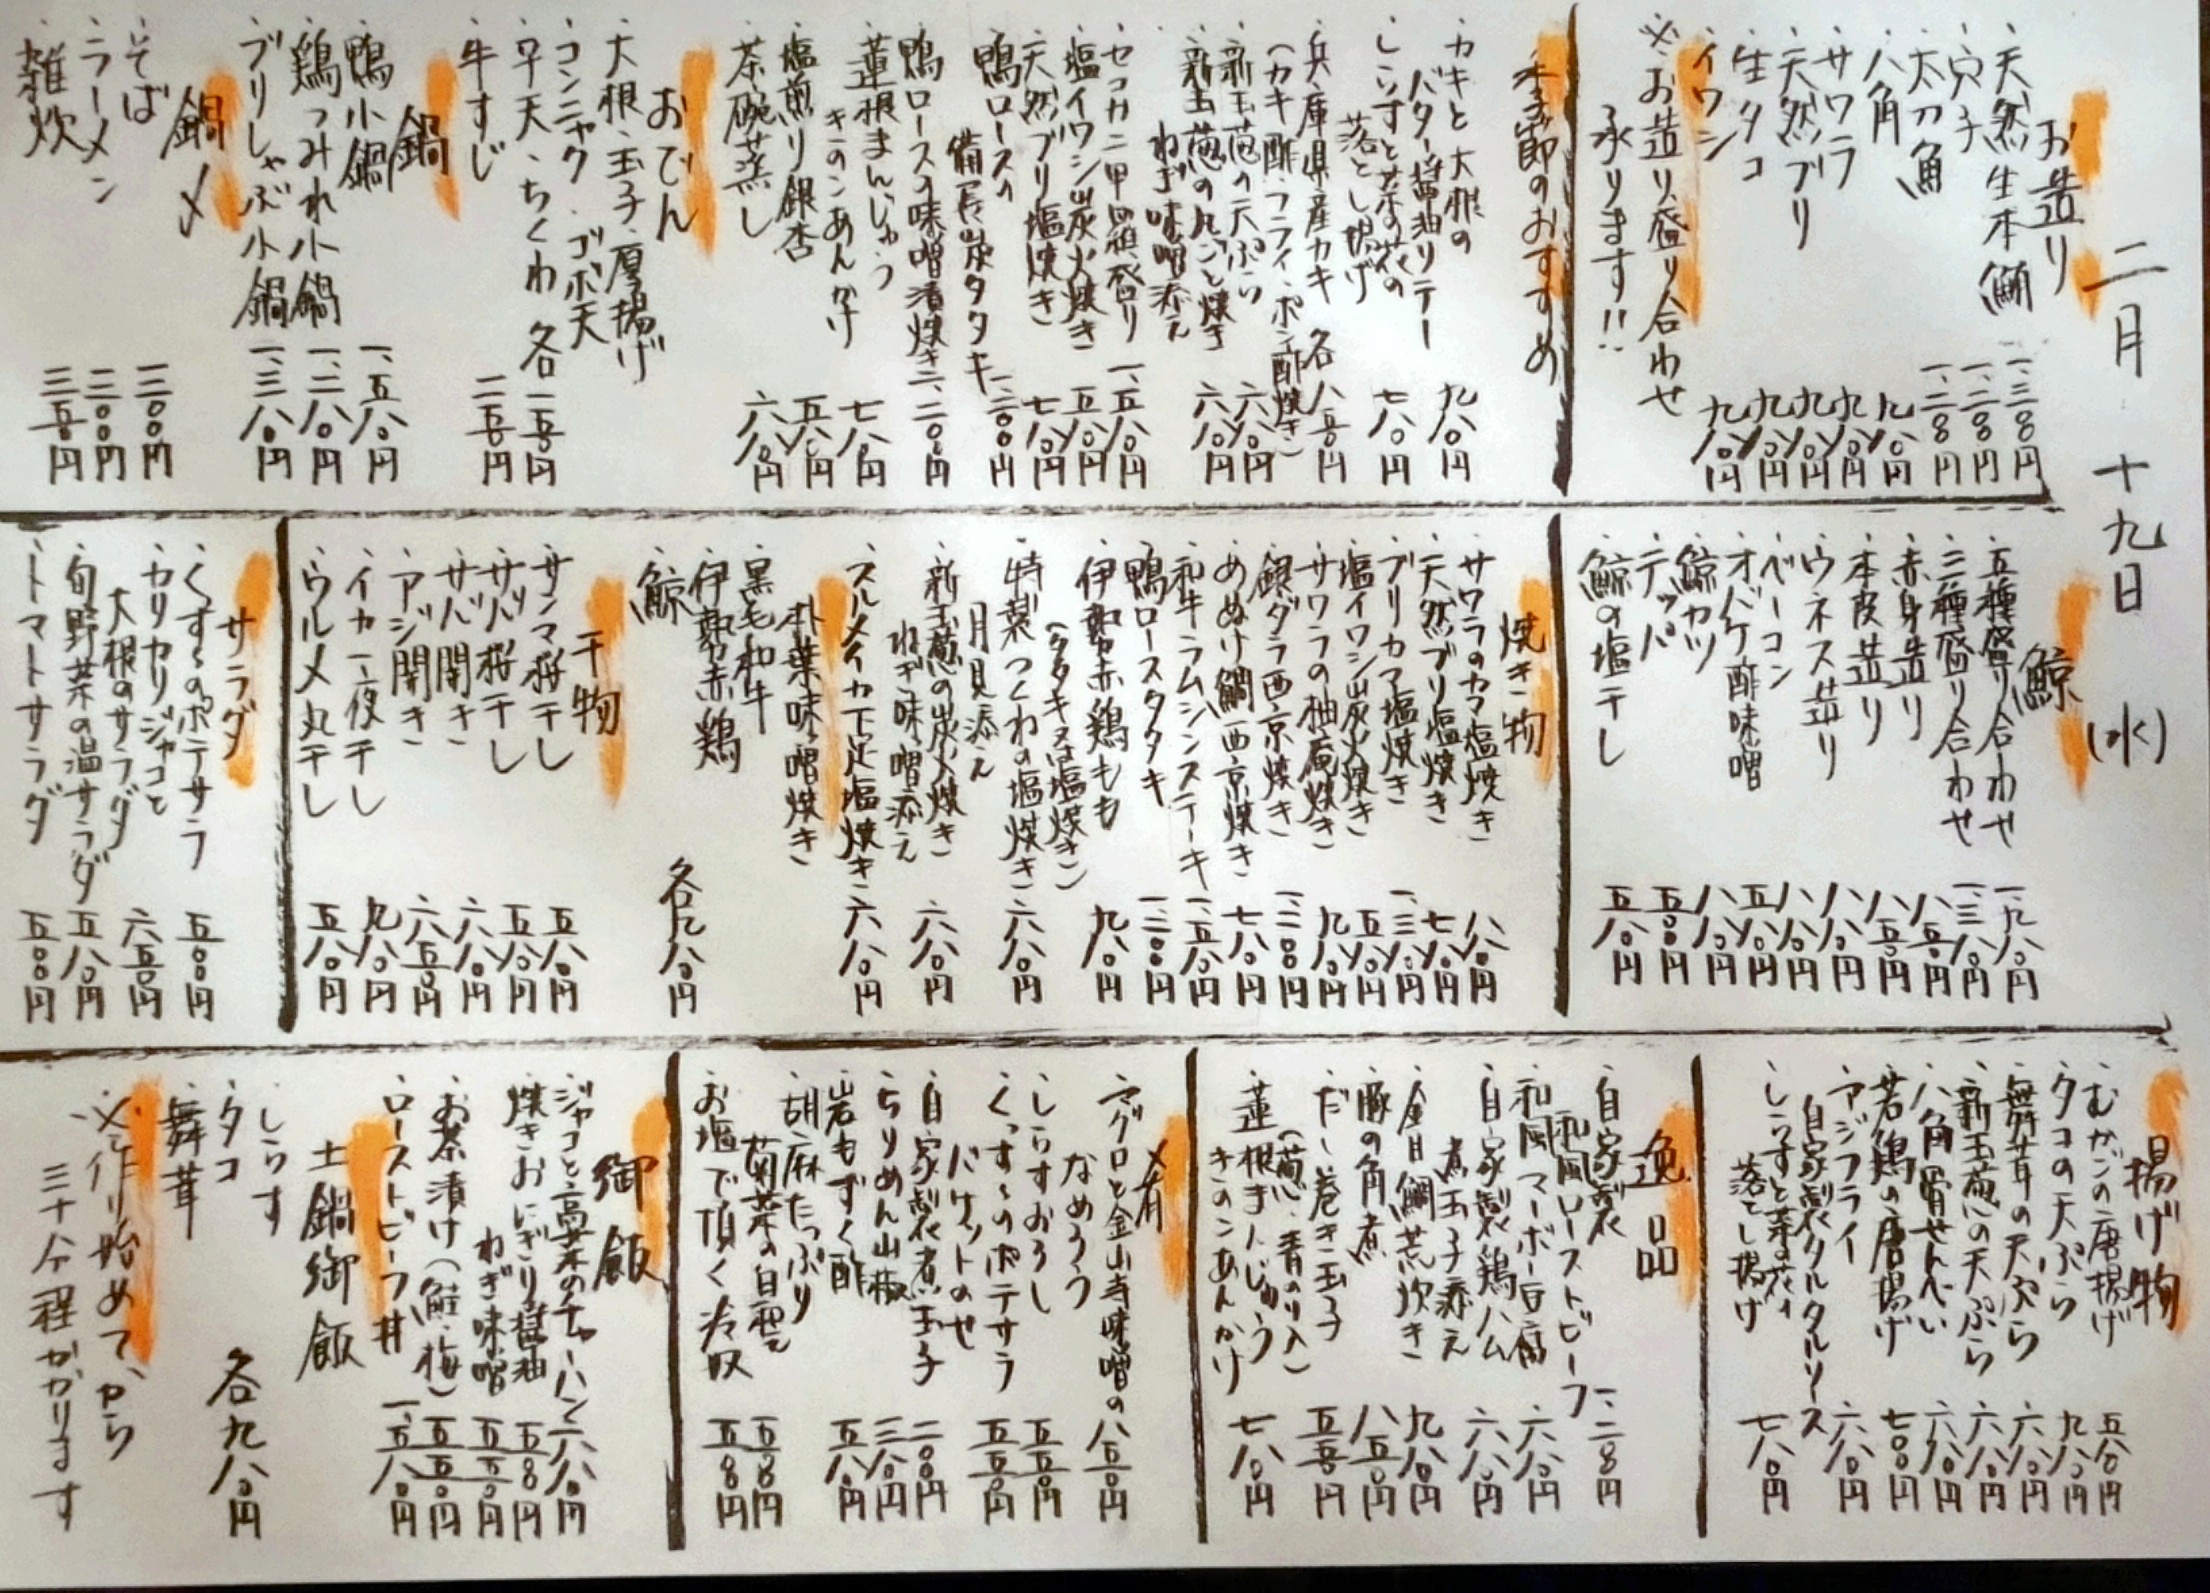 二月十九日(水)
お造り
・天然生本鮪 一、三八〇円
・穴子 一、二八〇円
・太刀魚 一、二八〇円
・八角 九八〇円
・サワラ 九八〇円
・天然ブリ 九八〇円
・生タコ 九八〇円
・イワシ 九八〇円
※お造り盛り合わせ
承ります!!
季節のおすすめ
・カキと大根の
バター醤油ソテー 九八〇円
・しらすと菜の花の
落とし揚げ 七八〇円
・兵庫県産カキ 各八五〇円
(カキ酢・フライ・ポン酢焼き)
・新玉葱の天ぷら 六八〇円
・新玉葱の丸ごと焼き
ねぎ味噌添え 六八〇円
・セコガニ甲羅盛り 一、五八〇円
・塩イワシ炭火焼き 五八〇円
・天然ブリ塩焼き 七八〇円
・鴨ロースの
備長炭タタキ 一、二〇〇円
・鴨ロースの味噌漬焼き 一、二〇〇円
・蓮根まんじゅう
きのこあんかけ 七八〇円
・塩煎り銀杏 五八〇円
・茶碗蒸し 六八〇円
おでん
・大根・玉子・厚揚げ
・コンニャク・ゴボ天
・平天・ちくわ 各一五〇円
・牛すじ 二五〇円
鍋
・鴨小鍋 一、五八〇円
・鶏つみれ小鍋 一、二八〇円
・ブリしゃぶ小鍋 一、三八〇円
鍋〆
・そば 二〇〇円
・ラーメン 二〇〇円
・雑炊 三五〇円
鯨
・五種盛り合わせ 一、九八〇円
・三種盛り合わせ 一、三八〇円
・赤身造り 八五〇円
・本皮造り 八五〇円
・ウネス造り 八八〇円
・ベーコン 八八〇円
・オバケ酢味噌 五八〇円
・鯨カツ 八八〇円
・テッパ 五〇〇円
・鯨の塩干し 五八〇円
焼き物
・サワラのカマ塩焼き 八八〇円
・天然ブリ塩焼き 七八〇円
・ブリカマ塩焼き 一、三八〇円
・塩イワシ炭火焼き 五八〇円
・サワラの柚庵焼き 九八〇円
・銀ダラ西京焼き 一、二〇〇円
・めぬけ鯛西京焼き 七八〇円
・和牛ラムシンステーキ 一、五八〇円
・鴨ロースタタキ 一、二〇〇円
・伊勢赤鶏もも
(タタキ又は塩焼き) 九八〇円
・特製つくねの塩焼き
月見添え 六八〇円
・新玉葱の炭火焼き
ねぎ味噌添え 六八〇円
・スルメイカ下足塩焼き 六八〇円
朴葉味噌焼き
・黒毛和牛
・伊勢赤鶏
・鯨 各九八〇円
干物
・サンマ桜干し 五八〇円
・サバ桜干し 五八〇円
・サバ開き 六八〇円
・アジ開き 六五〇円
・イカ一夜干し 九八〇円
・ウルメ丸干し 五八〇円
サラダ
・くすくすのポテサラ 五〇〇円
・カリカリジャコと
大根のサラダ 六五〇円
・旬野菜の温サラダ 五八〇円
・トマトサラダ 五〇〇円
揚げ物
・むかごの唐揚げ 五八〇円
・タコの天ぷら 九八〇円
・舞茸の天ぷら 六八〇円
・新玉葱の天ぷら 六八〇円
・八角骨せんべい 六八〇円
・若鶏の唐揚げ 七〇〇円
・アジフライ
自家製タルタルソース 六八〇円
・しらすと菜の花の
落とし揚げ 七八〇円
逸品
・自家製
和風ローストビーフ 一、二八〇円
・和風マーボー豆腐 六八〇円
・自家製鶏ハム
煮玉子添え 六八〇円
・金目鯛荒炊き 九八〇円
・豚の角煮 八五〇円
・だし巻き玉子
(葱・青のり入) 五五〇円
・蓮根まんじゅう
きのこあんかけ 七八〇円
〆肴
・マグロと金山寺味噌の
なめろう 八五〇円
・しらすおろし 五五〇円
・くすくすのポテサラ
バケットのせ 五五〇円
・自家製煮玉子 二〇〇円
・ちりめん山椒 三八〇円
・岩もずく酢 五八〇円
・胡麻たっぷり
菊菜の白和え 五五〇円
・お塩で頂く冷奴 五五〇円
御飯
・ジャコと高菜のチャーハン 六八〇円
・焼きおにぎり醤油 五五〇円
ねぎ味噌 五五〇円
・お茶漬け(鮭・梅) 五五〇円
・ローストビーフ丼 一、五八〇円
土鍋御飯
・しらす
・タコ
・舞茸 各九八〇円
※作り始めてから
三十分程かかります